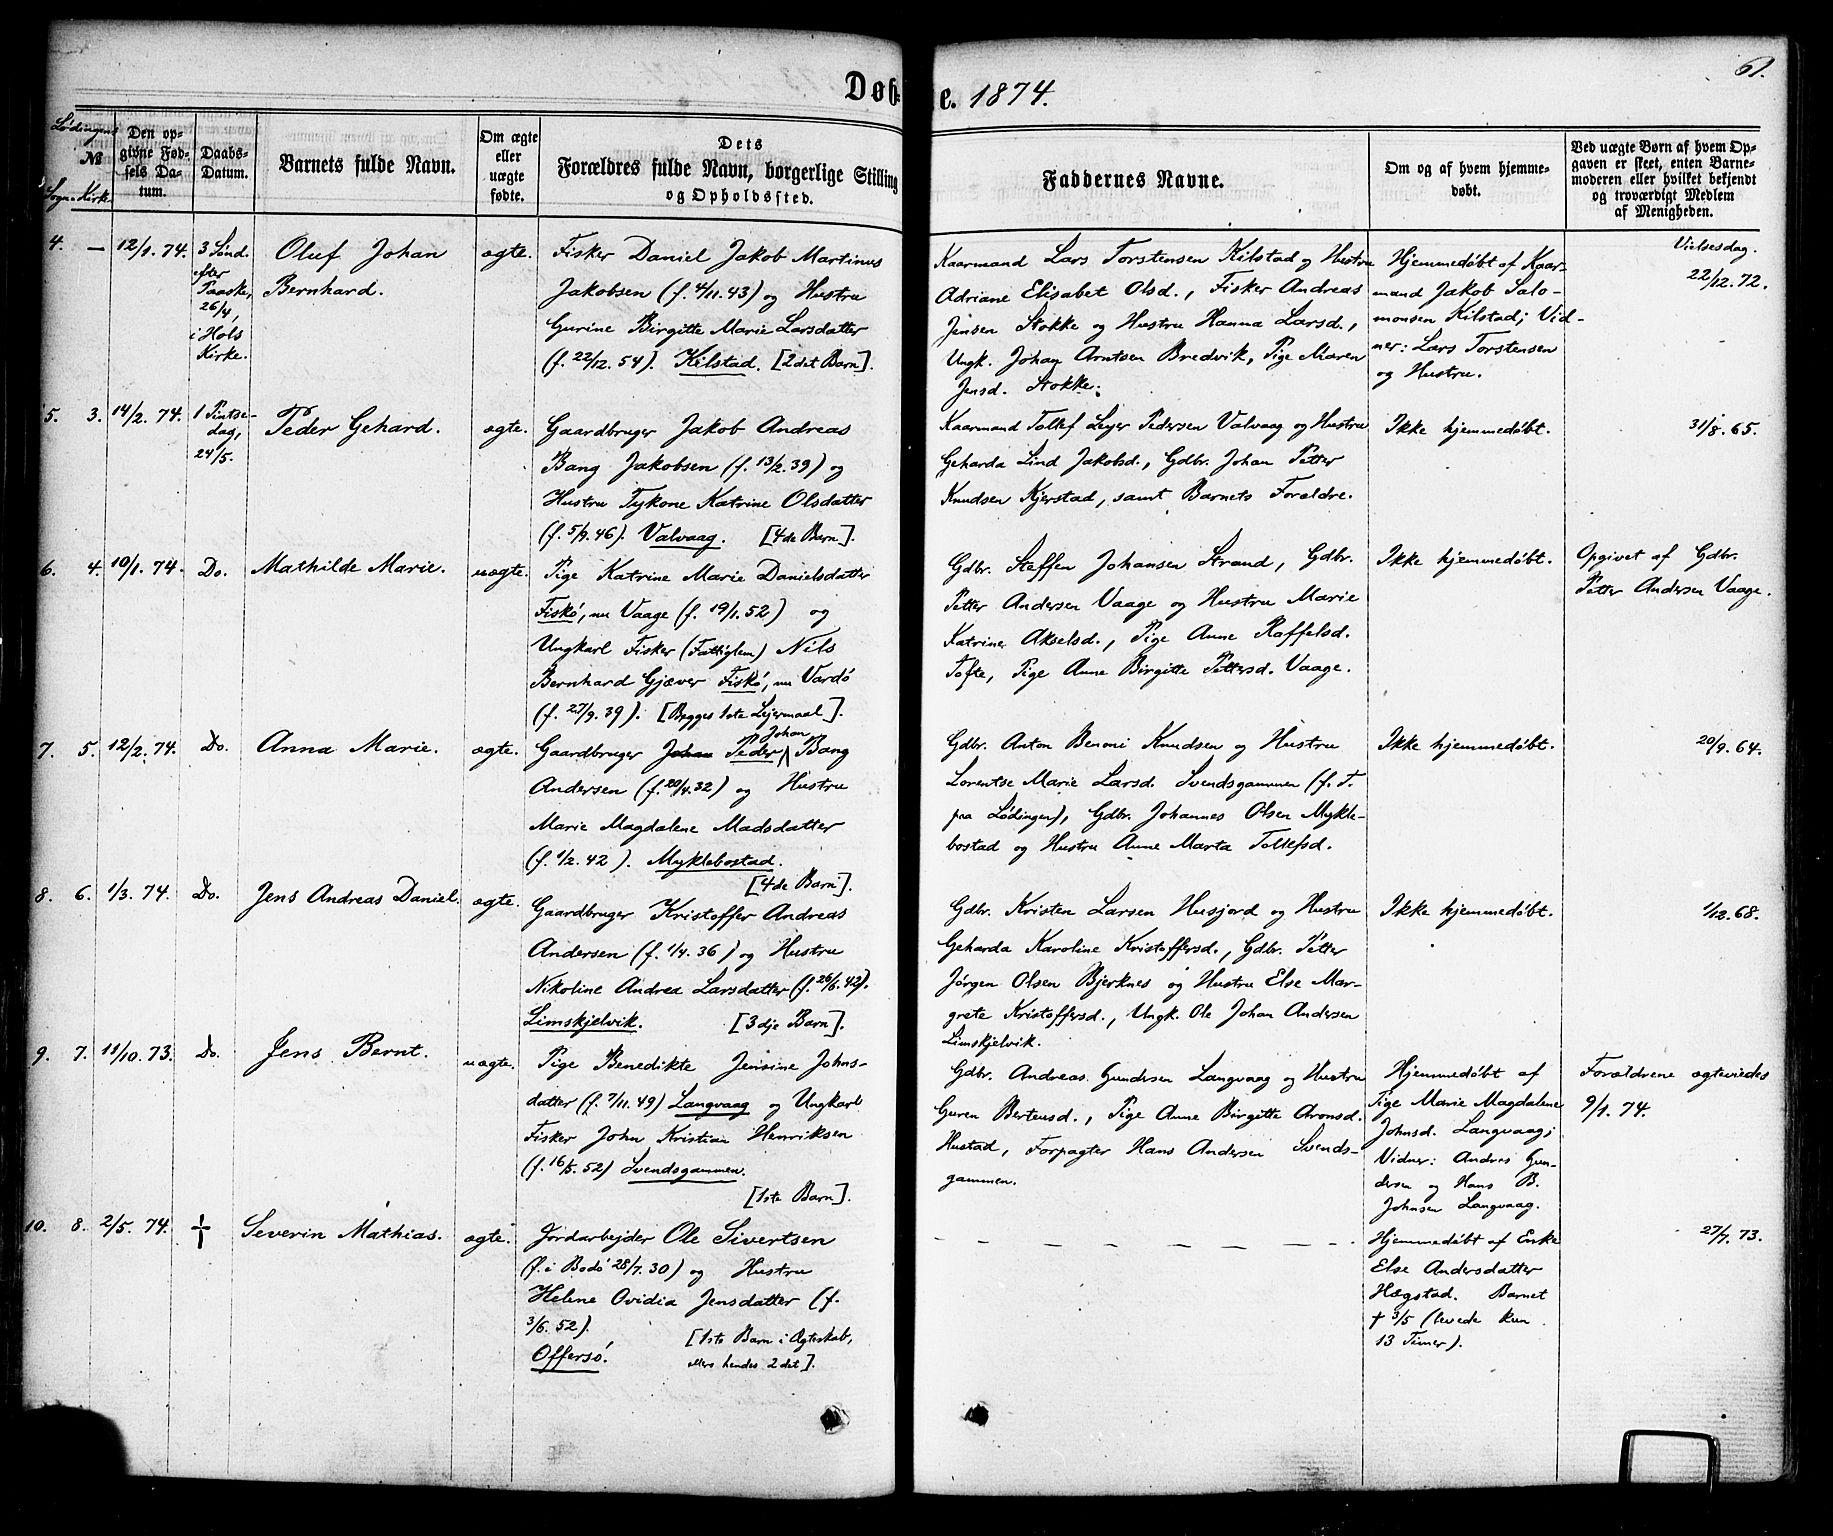 61.
Døb- e. 1874.
Lødingens
Sogn. Kirke.
№
Den op-
givne Fød-
sels Da-
tum.
Daabs-
Datum.
Barnets fulde Navn.
Om ægte
eller
uægte
fødte.
Dets
Forældres fulde Navn, borgerlige Stilling
og Opholdssted.
Faddernes Navne.
Om og af hvem hjemme-
døbt.
Ved uægte Børn af hvem Op-
gaven er skeet, enten Barne-
moderen eller hvilket bekjendt
og troværdigt Medlem
af Menigheden.
4. — 12/1. 74.
3 Sønd.
efter
Paaske,
26/4,
i Hols
Kirke.
Oluf Johan
Bernhard.
ægte.
Fisker Daniel Jakob Martinus
Jakobsen (f. 4/11. 43) og Hustru
Gurine Birgitte Marie Larsdatter
(f. 22/12. 54). Kilstad. [2det Barn].
Kaarmand Lars Torstensen Kilstad og Hustru
Adriane Elisabet Olsd., Fisker Andreas
Jensen Stokke og Hustru Hanna Larsd.,
Ungk. Johan Arntsen Bredvik, Pige Maren
Jensd. Stokke.
Hjemmedøbt af Kaar-
mand Jakob Salo-
monsen Kilstad; Vid-
ner: Lars Torstensen
og Hustru.
Vielsesdag.
22/12. 72.
5. 3. 14/2. 74.
1 Pintse-
dag,
24/5.
Peder Gehard.
ægte.
Gaardbruger Jakob Andreas
Bang Jakobsen (f. 13/2. 39) og
Hustru Tykone Katrine Olsdatter
(f. 5/9. 46). Valvaag. [4de Barn].
Kaarmand Tollef Leyer Pedersen Valvaag og Hustru
Geharda Lind Jakobsd., Gdbr. Johan Petter
Knudsen Kjerstad, samt Barnets Forældre.
Ikke hjemmedøbt.
31/8. 65.
6. 4. 10/1. 74. Do. Mathilde Marie. uægte.
Pige Katrine Marie Danielsdatter
Fiskø, nu Vaage (f. 19/1. 52) og
Ungkarl Fisker (Fattiglem) Nils
Bernhard Gjæver Fiskø, nu Vardø
(f. 27/9. 39). [Begges 1ste Lejermaal].
Gdbr. Steffen Johansen Strand, Gdbr.
Petter Andersen Vaage og Hustru Marie
Katrine Akselsd., Pige Anne Raffelsd.
Tofte, Pige Anne Birgitte Pettersd. Vaage.
Ikke hjemmedøbt.
Opgivet af Gdbr.
Petter Andersen Vaage.
7. 5. 12/2. 74. Do. Anna Marie. ægte.
Johan
Gaardbruger Johan Peder Bang
Andersen (f. 20/4. 32) og Hustru
Marie Magdalene Madsdatter
(f. 1/2. 42). Myklebostad.
[4de Barn].
Gdbr. Anton Benoni Knudsen og Hustru
Lorentse Marie Larsd. Svendsgammen (f. T.
fra Lødingen), Gdbr. Johannes Olsen Mykle-
bostad og Hustru Anne Marta Tollefsd.
Ikke hjemmedøbt.
20/9. 64.
8. 6. 1/3. 74. Do. Jens Andreas Daniel. ægte.
Gaardbruger Kristoffer Andreas
Andersen (f. 1/4. 36) og Hustru
Nikoline Andrea Larsdatter (f. 26/6. 42).
Limskjelvik. [3dje Barn].
Gdbr. Kristen Larsen Husjord og Hustru
Geharda Karoline Kristoffersd., Gdbr. Petter
Jørgen Olsen Bjerknes og Hustru Else Mar-
grete Kristoffersd., Ungk. Ole Johan Andersen
Limskjelvik.
Ikke hjemmedøbt.
1/12. 68.
9. 7. 11/10. 73. Do. Jens Bernt. uægte.
Pige Benedikte Jensine Johns-
datter (f. 7/11. 49) Langvaag og Ungkarl
Fisker John Kristian Henriksen
(f. 16/5. 52) Svendsgammen.
[1ste Barn].
Gdbr. Andreas Gundersen Langvaag og Hustru
Guren Berteusd., Pige Anne Birgitte Aronsd.
Hustad, Forpagter Hans Andersen Svends-
gammen.
Hjemmedøbt af
Pige Marie Magdalene
Johnsd. Langvaag;
Vidner: Andreas Gun-
dersen og Hans B.
Johnsen Langvaag.
Forældrene ægteviedes
9/1. 74.
10. 8. 2/5. 74. † Severin Mathias. ægte.
Jordarbejder Ole Sivertsen
(f. i Bodø 28/7. 30) og Hustru
Helene Ovidia Jensdatter (f.
3/6. 52). [1ste Barn i Ægteskab,
Offersø. ellers hendes 2det].
— — — — — — — —
Hjemmedøbt af Enke
Else Andersdatter
Hægstad. Barnet
† 3/5 (levede kun
13 Timer).
27/7. 73.